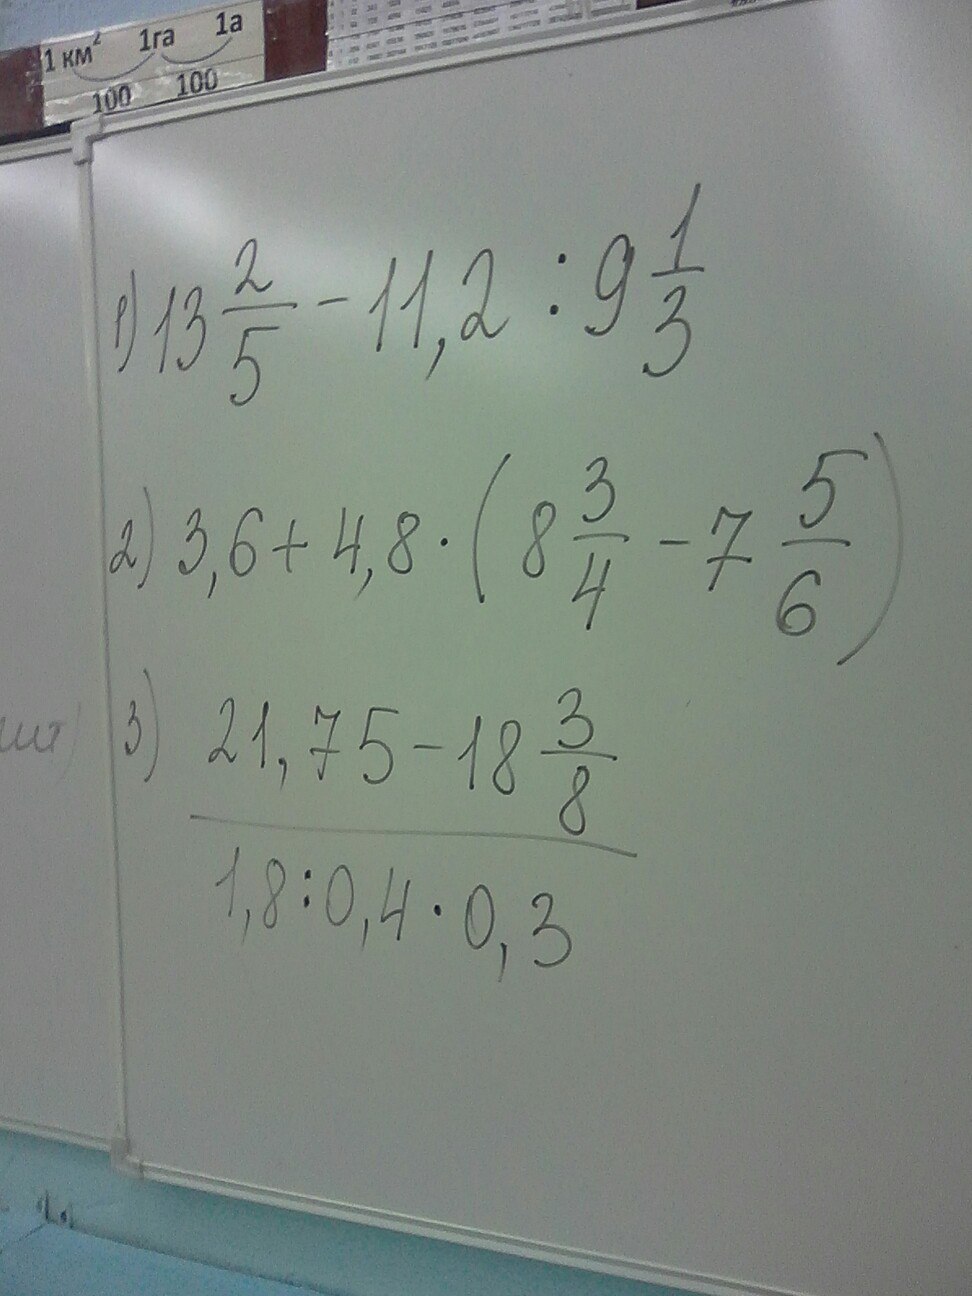 1 км² 1га 1а
100 100
1) 13 2/5 - 11,2 : 9 1/3
2) 3,6 + 4,8 · (8 3/4 - 7 5/6)
3) 21,75 - 18 3/8
1,8 : 0,4 · 0,3